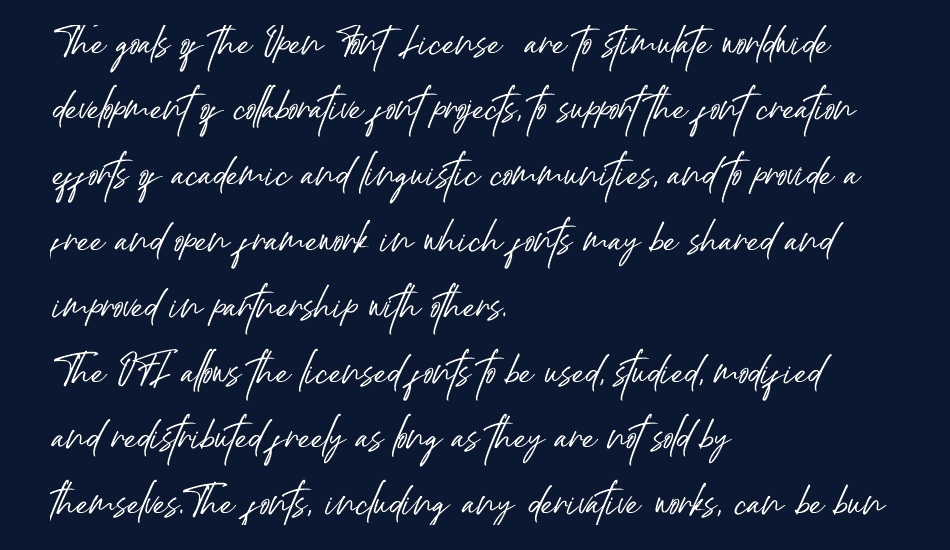 The goals of the Open Font License are to stimulate worldwide
development of collaborative font projects, to support the font creation
efforts of academic and linguistic communities, and to provide a
free and open framework in which fonts may be shared and
improved in partnership with others.
The OFL allows the licensed fonts to be used, studied, modified
and redistributed freely as long as they are not sold by
themselves. The fonts, including any derivative works, can be bun